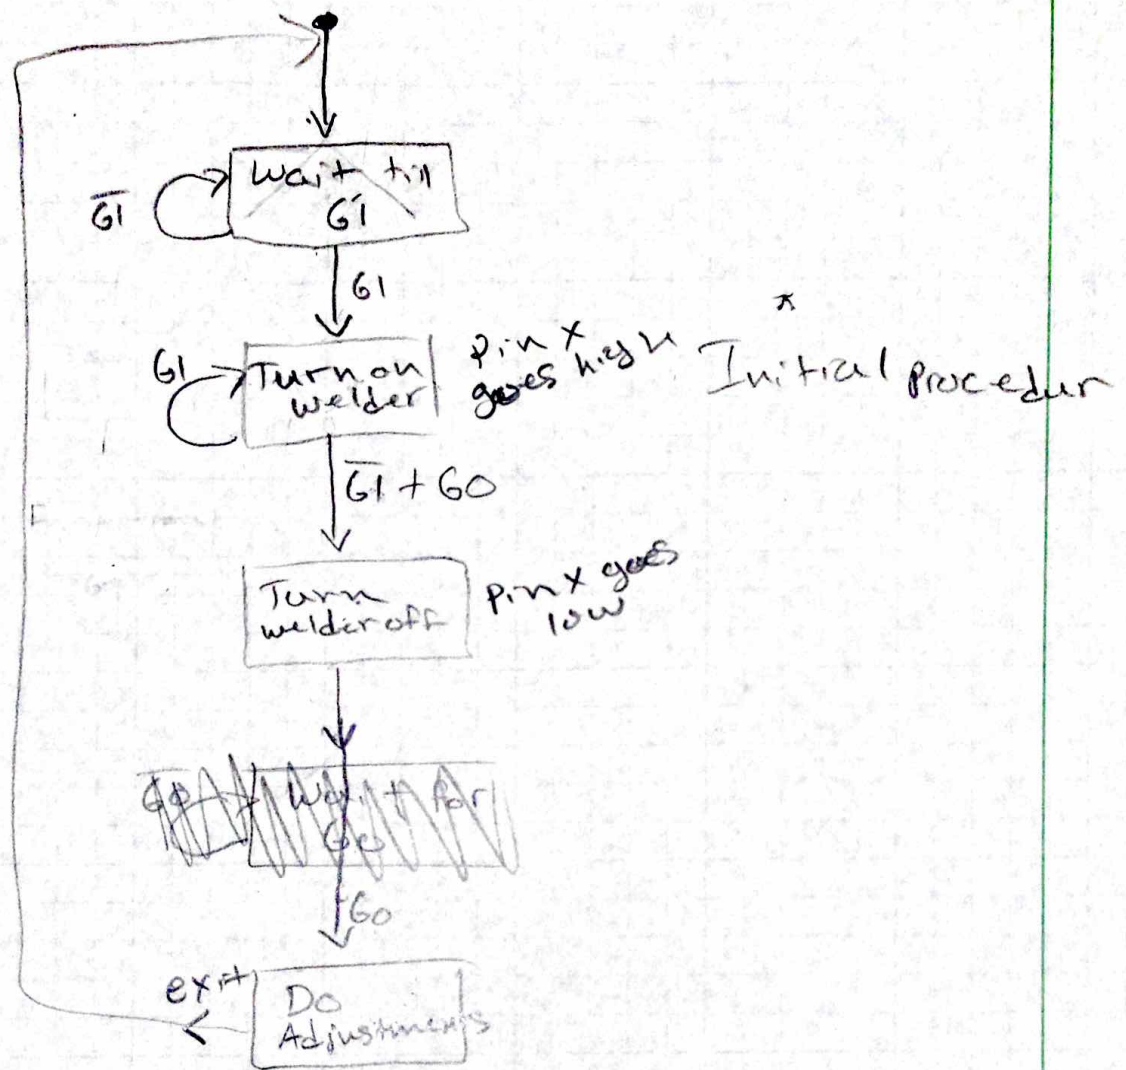 Wait till
G1
G̅1̅
G1
G1
Turn on
welder
pin X
goes high
*
Initial Procedur
G̅1̅ + GO
Turn
welder off
pin X goes
low
Wait for
Go
Go
exit
Do
Adjustments